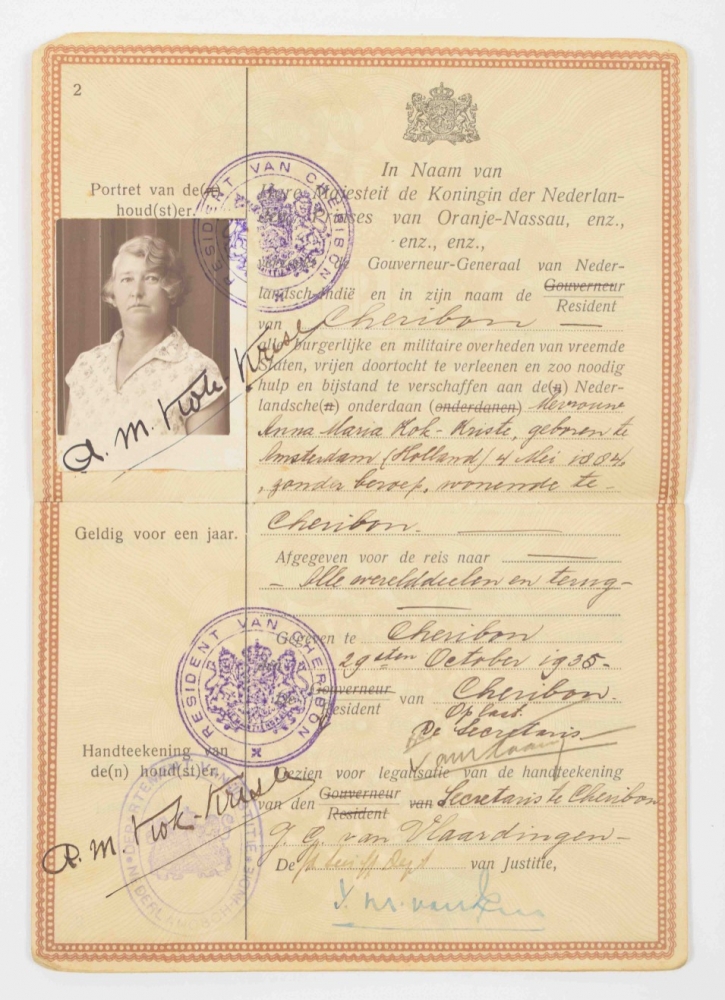 2
Portret van de(n)
houd(st)er.
RESIDENT VAN CHERIBON
In Naam van
Hare Majesteit de Koningin der Nederlan-
Prinses van Oranje-Nassau, enz.,
enz., enz.,
de Gouverneur-Generaal van Neder-
landsch-Indië en in zijn naam de Gouverneur
Resident
van Cheribon
burgerlijke en militaire overheden van vreemde
Staten, vrijen doortocht te verleenen en zoo noodig
hulp en bijstand te verschaffen aan de(n) Neder-
landsche(n) onderdaan (onderdanen) Mevrouw
A. M. Kok-Kriste
Anna Maria Kok-Kriste, geboren te
Amsterdam (Holland) 4 Mei 1884,
, zonder beroep, wonende te -
Geldig voor een jaar.
Cheribon.
Afgegeven voor de reis naar
- Alle werelddeelen en terug -
RESIDENT VAN CHERIBON
Gegeven te Cheribon
29sten October 1935-
Gouverneur
Resident van Cheribon.
Op last:
De Secretaris
Handteekening van
de(n) houd(st)er.
Gezien voor legalisatie van de handteekening
van den Gouverneur
Resident van Secretaris te Cheribon
A. M. Kok-Kriste
DEPARTEMENT VAN JUSTITIE NEDERLANDSCH-INDIE
J. G. van Vlaardingen -
De van Justitie,